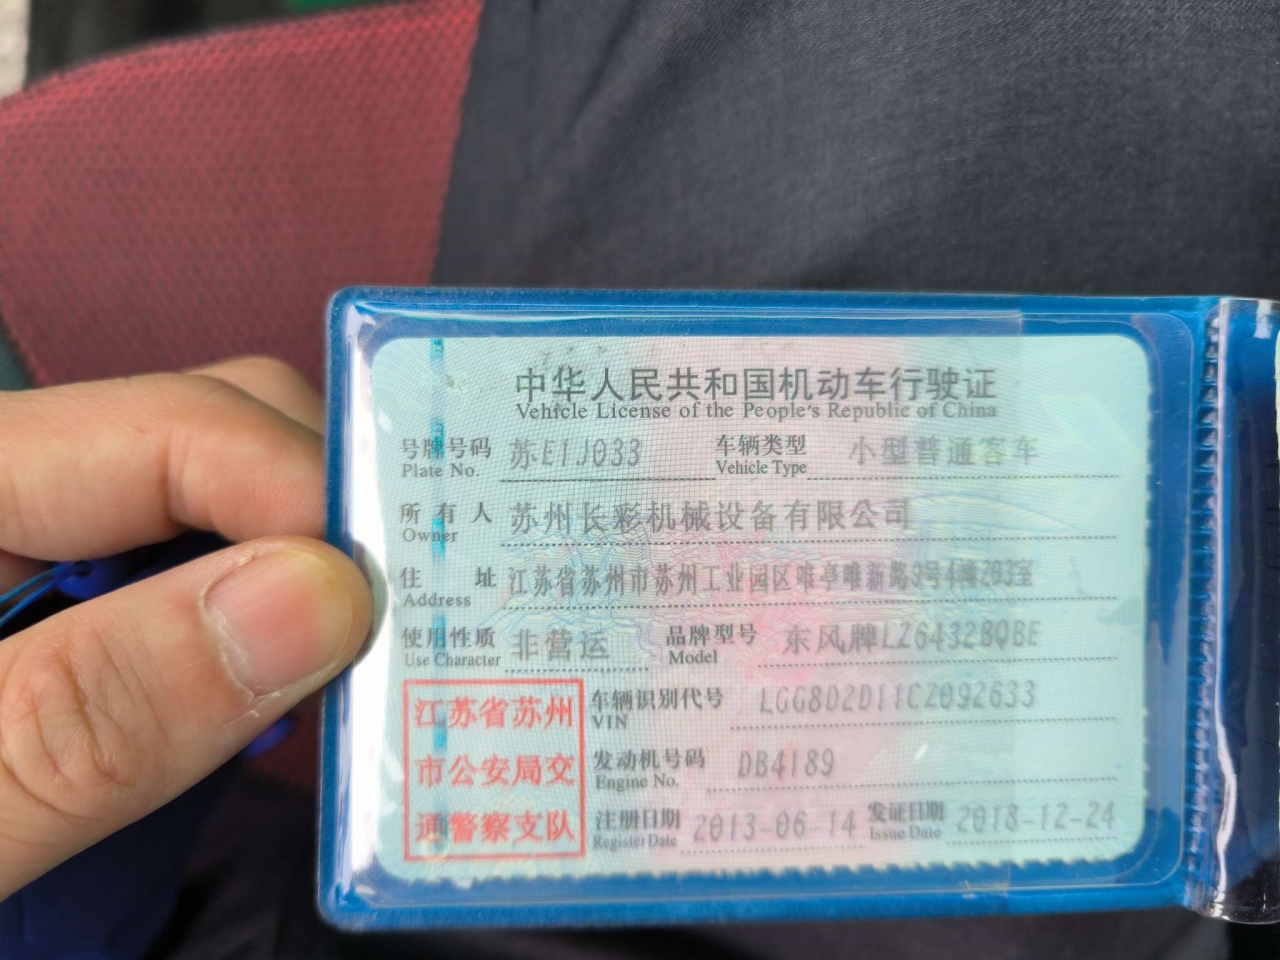 中华人民共和国机动车行驶证
Vehicle License of the People's Republic of China
号牌号码 苏E1J033 车辆类型 小型普通客车
Plate No. Vehicle Type
所有人 苏州长彩机械设备有限公司
Owner
住址 江苏省苏州市苏州工业园区唯亭唯新路9号4幢203室
Address
使用性质 非营运 品牌型号 东风牌LZ6432BQBE
Use Character Model
江苏省苏州
市公安局交
通警察支队
车辆识别代号 LGG8D2D11CZ092633
VIN
发动机号码 DB4189
Engine No.
注册日期 2013-06-14 发证日期 2018-12-24
Register Date Issue Date